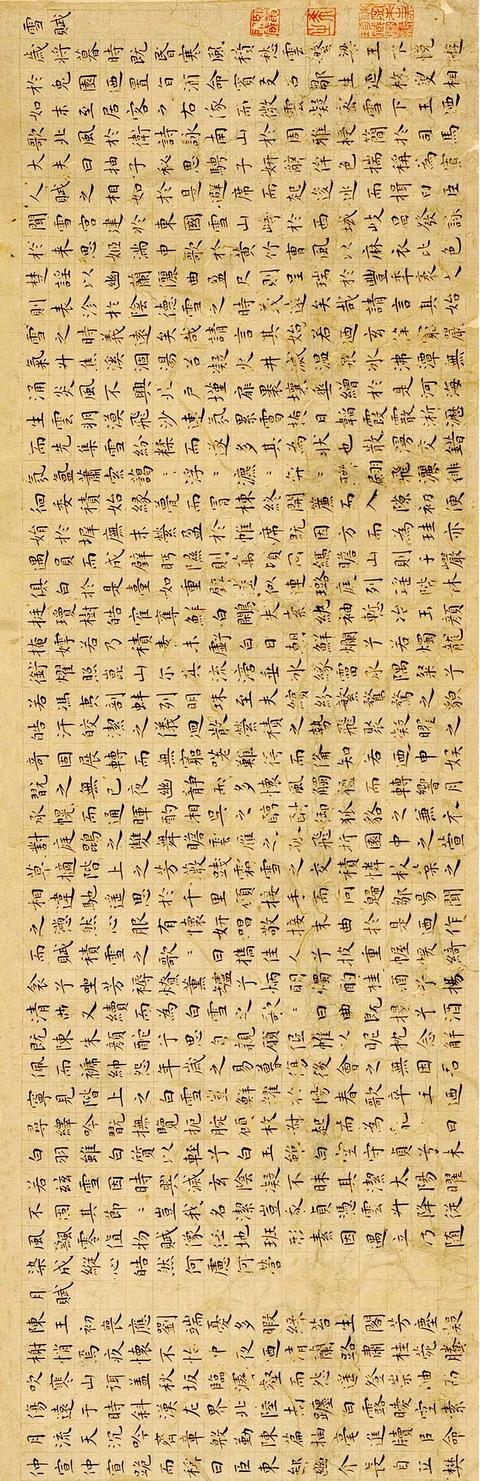 雪賦
歲將暮時既昏寒風積愁雲繁梁王不悅遊
於兔園迺置旨酒命賓友召鄒生延枚叟相
如末至居客之右俄而微霰凝密雪下王迺
歌北風於衛詩詠南山於周雅授簡於司馬
大夫曰抽子秘思騁子妍辭侔色揣稱為寡
人賦之相如於是避席而起逡巡而揖曰臣
聞雪宮建於東國雪山峙於西域岐昌發詠
於來思姬滿申歌於黃竹曹風以麻衣比色
楚謠以幽蘭儷曲盈尺則呈瑞於豐年袤丈
則表沴於陰德雪之時義遠矣哉請言其始
雪之時義遠矣哉請言其始若迺玄律窮嚴
氣升焦溪涸湯谷凝火井滅溫泉冰沸潭無
涌炎風不興北戶墐扉裸壤垂繒於是河海
生雲朔漠飛沙連氣累靄揜日韜霞霰淅瀝
而先集雪紛糅而遂多其為狀也散漫交錯
氛氳蕭索藹：浮：瀌：弈：聯翩飛灑徘
徊委積始緣甍而冒棟終開簾而入隙初便
娟於墀廡末縈盈於帷席既因方而為珪亦
遇員而成璧眄隰則萬頃同縞瞻山則千巖
俱白於是臺如重璧逵似連璐庭列瑤階林
挺瓊樹皓鶴奪鮮白鷳失素紈袖慙冶玉顏
掩姱若乃積素未虧白日朝鮮爛兮若燭龍
銜耀照崑山爾其流滴垂冰緣霤承隅粲兮
若馮夷剖蚌列明珠至夫繽紛繁騖之貌
皓汗皎潔之儀迴散縈積之勢飛聚凝曜之
奇固展轉而無窮嗟難得而備知若迺申娛
翫之無已夜幽靜而多懷風觸楹而轉響月
承幌而通暉酌湘吳之醇酎御狐貉之兼衣
對庭鵾之雙舞瞻雲雁之孤飛折園中之萱
草摘階上之芳薇踐霜雪之交積憐枝葉之
相違馳遙思於千里願接手而同歸鄒陽聞
之懣然心服有懷妍唱敬接末曲於是迺作
而賦積雪之歌：曰攜佳人兮披重幄援綺
衾兮坐芳褥燎薰爐兮炳明燭酌桂酒兮揚
清曲又續而為白雪之歌：曰曲既揚兮酒
既陳朱顏酡兮思自親願低帷以昵枕念解
佩而褫紳怨年歲之易暮傷後會之無因君
寧見階上之白雪豈鮮耀於陽春歌卒王迺
尋繹吟翫撫覽扼腕顧枚叔起而為亂曰
白羽雖白質以輕兮白玉雖白空守貞兮未
若茲雪因時興滅玄陰凝不昧其潔太陽曜
不固其節：豈我名潔豈我貞憑雲升降從
風飄零值物賦像任地班形素因遇立汙隨
染成縱心皓然何慮何營
月賦
陳王初喪應劉端憂多暇綠苔生閣芳塵凝
榭悄焉疚懷不怡中夜迺清蘭路肅桂苑騰
吹寒山弭蓋秋坂臨濬壑而怨遙登崇岫而
傷遠于時斜漢左界北陸南躔白露曖空素
月流天沉吟齊章殷勤陳篇抽毫進牘以命
仲宣仲宣跪而稱曰臣東鄙幽介長自丘樊